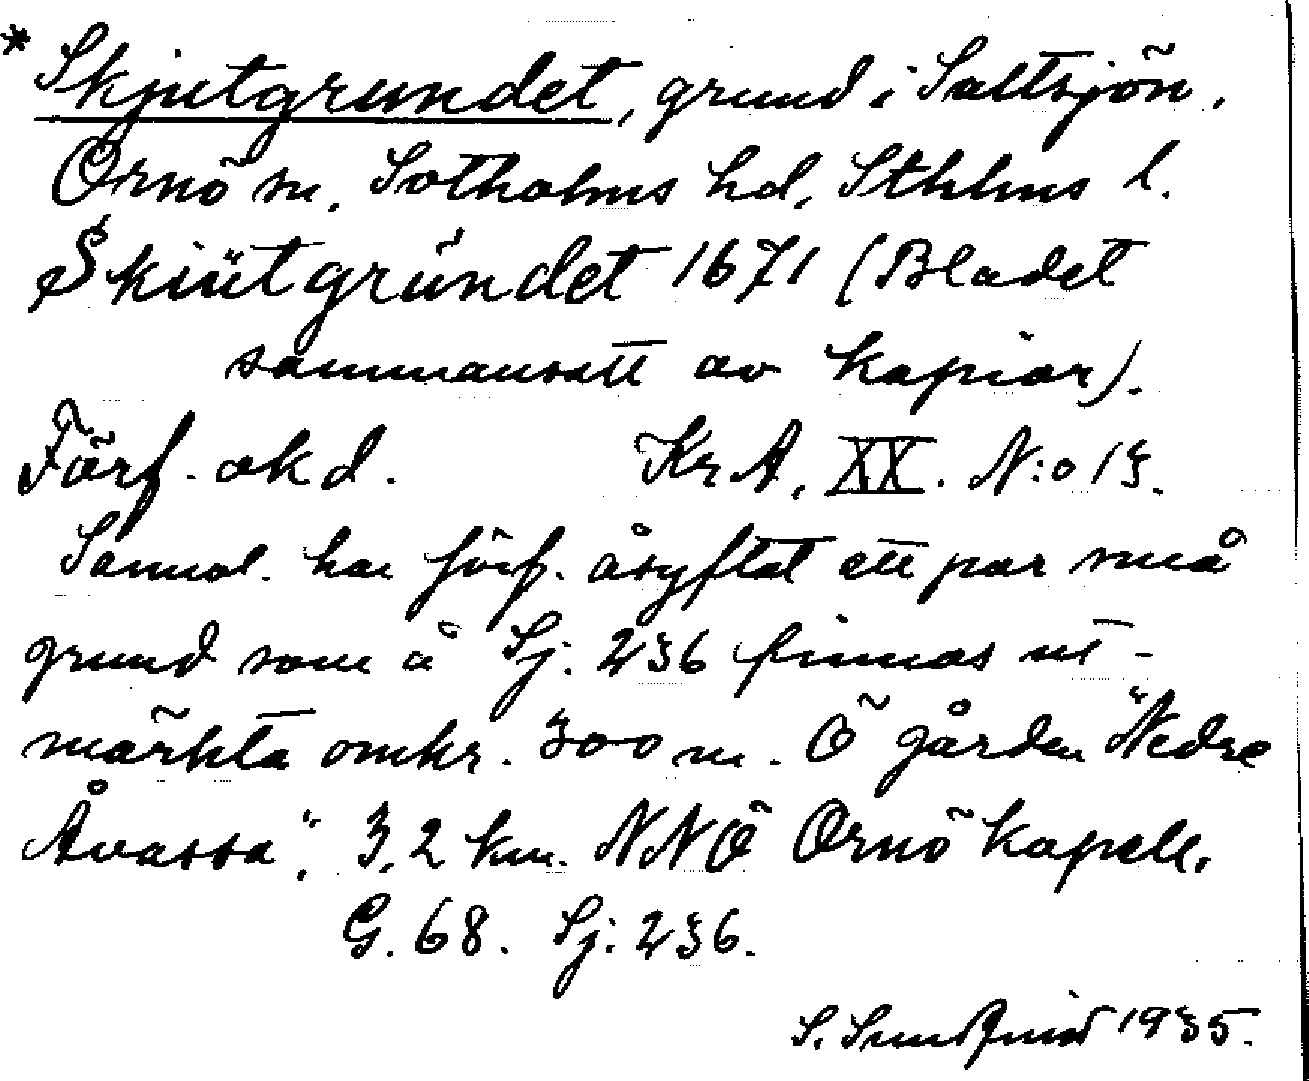 * Skjutgrundet, grund i Saltsjön,
Ornö sn. Sotholms hd, Sthlms l.
Skiütgründet 1671 (Bladet
sammansatt av kopior).
Förf. okd. Kr A, XX. N:o 13.
Sannol. har förf. åsyftat ett par små
grund som å Sj. 236 finnas ut-
märkta omkr. 300 m. Ö gården "Nedre
Åvassa", 3,2 km. NNÖ Ornö kapell.
G. 68. Sj. 236.
S. Sundquist 1935.